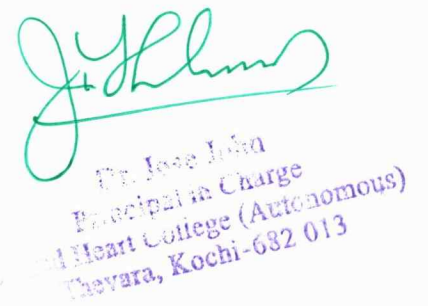 Dr. Jose John
Principal in Charge
d Heart College (Autonomous)
Thevara, Kochi-682 013